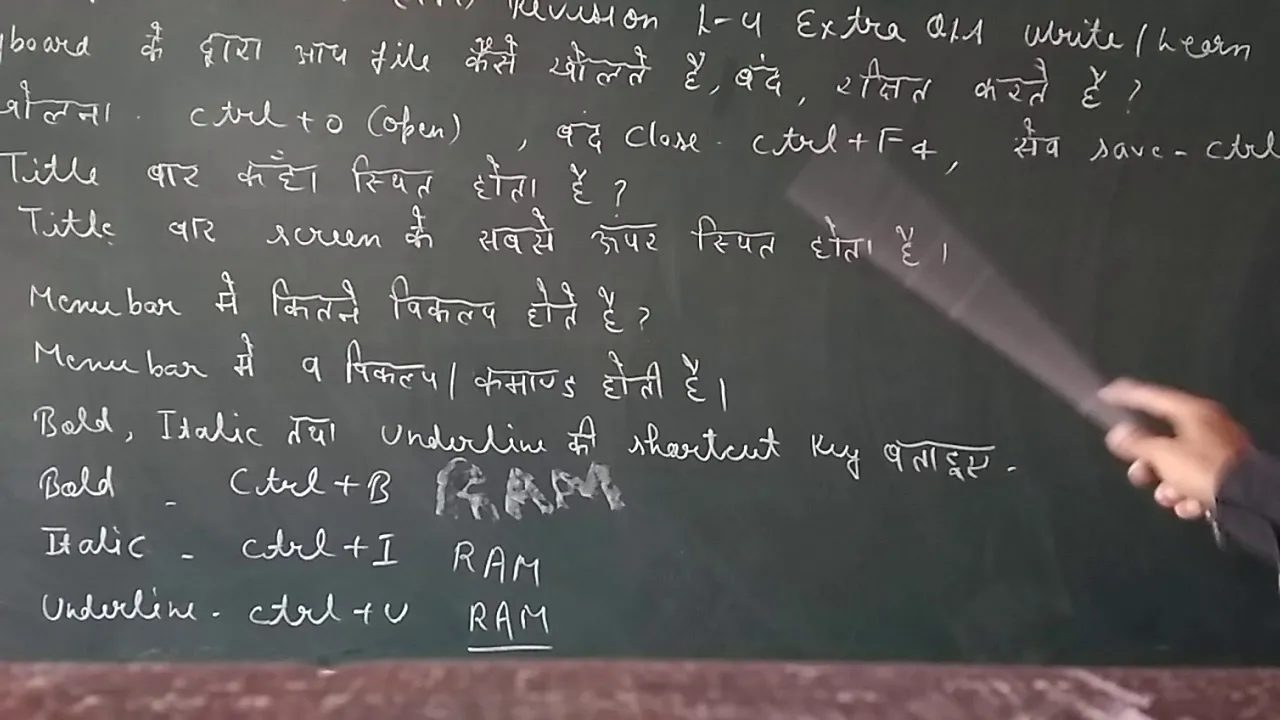 Revision L-4 Extra Q/A Write/Learn
yboard के द्वारा आप file कैसे खोलते हैं, बंद, रक्षित करते है ?
खोलना. ctrl+O (open), बंद Close. ctrl+F4, सेव save-ctrl
Title बार कहाँ स्थित होता है ?
Title बार screen के सबसे ऊपर स्थित होता है।
Menu bar में कितने विकल्प होते है ?
Menu bar में 9 विकल्प/कमाण्ड होती है।
Bold, Italic तथा Underline की shortcut key बताइए.
Bold - Ctrl+B RAM
Italic - ctrl+I RAM
Underline - ctrl+U RAM